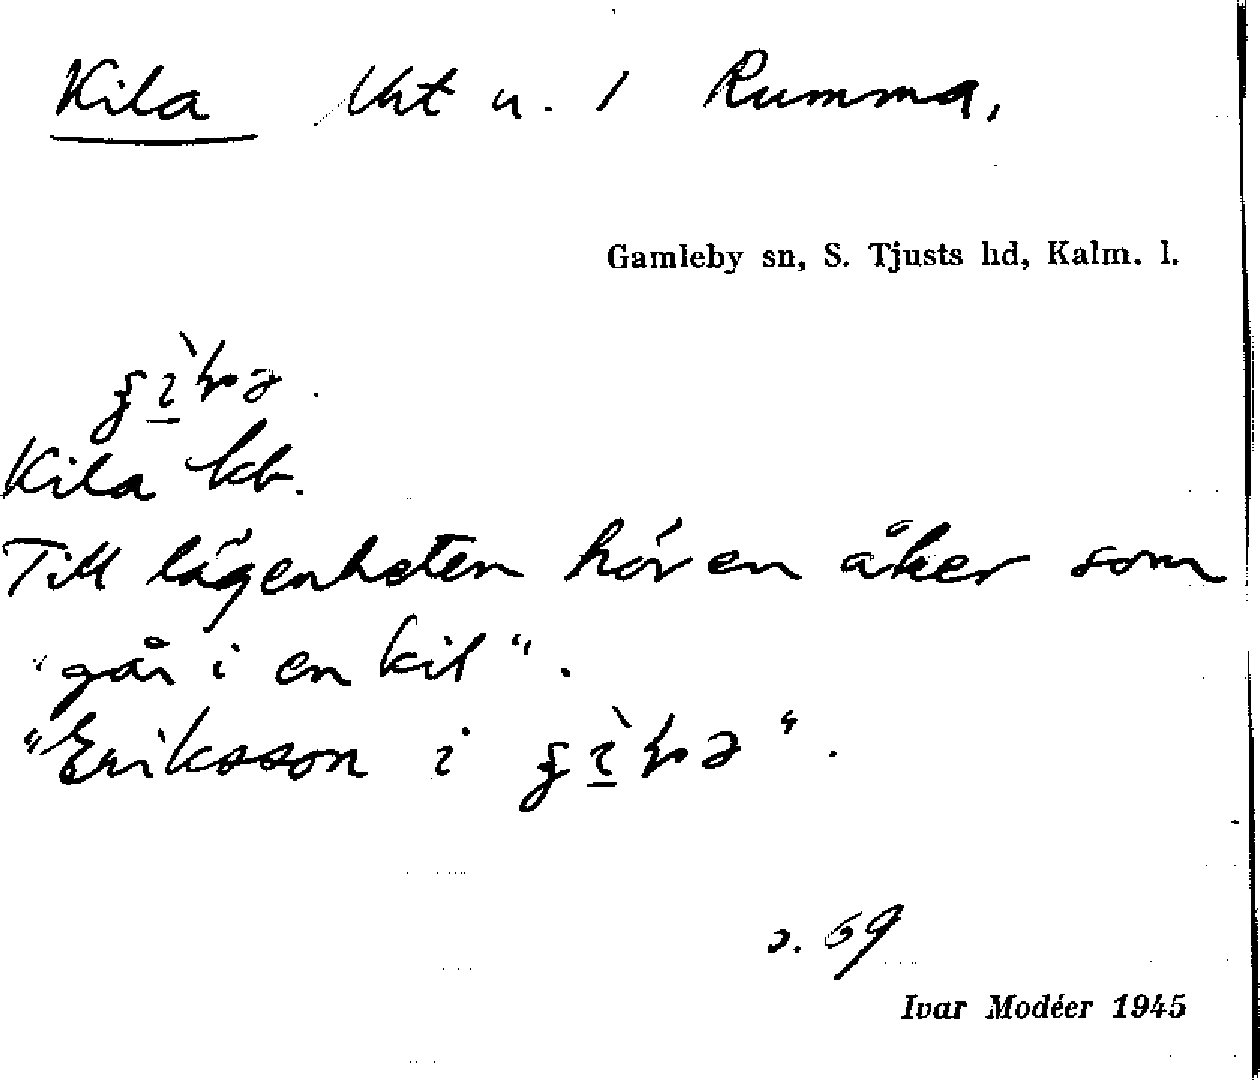 Kila lht u. / Rumma,
Gamleby sn, S. Tjusts hd, Kalm. l.
Kila kb.
Till lägenheten hör en åker som
"går i en kil".
"Eriksson i
s. 69
Ivar Modéer 1945